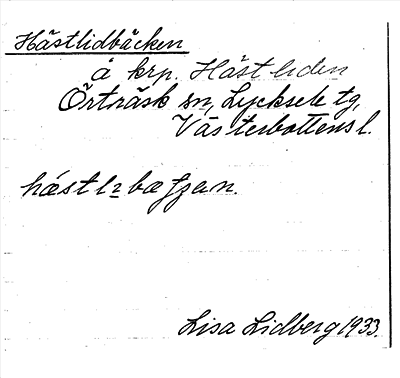 Hästlidbäcken
å krp. Hästliden
Örträsk sn, Lycksele tg,
Västerbottens l.
Lisa Lidberg 1933.